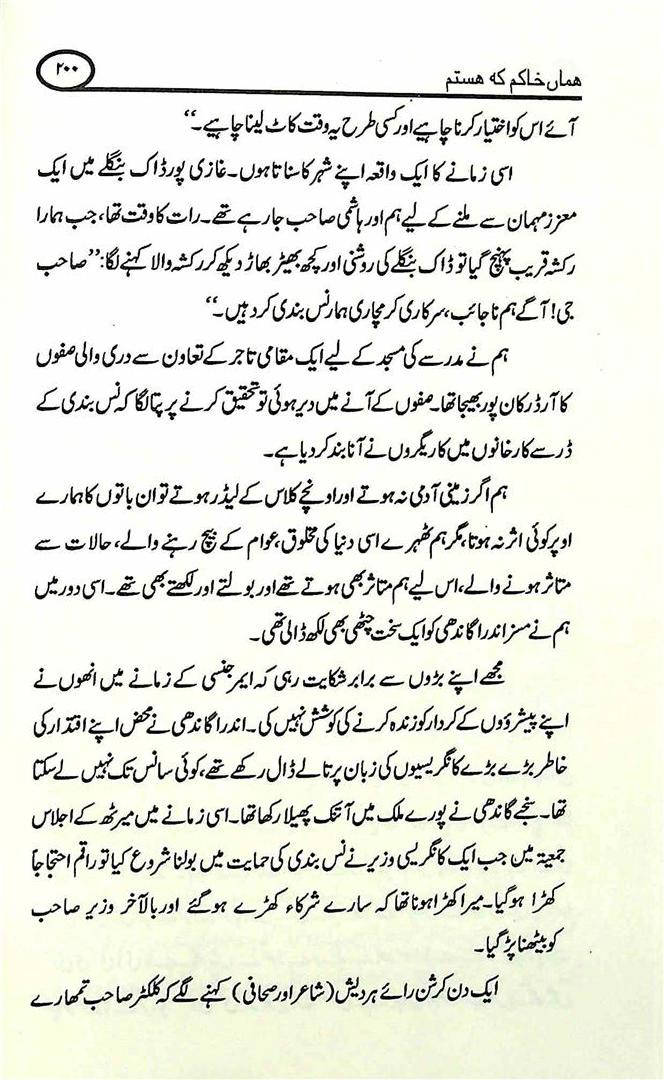 ہماں خاکم کہ ہستم
۲۰۰
آئے اس کو اختیار کرنا چاہیے اور کسی طرح یہ وقت کاٹ لینا چاہیے۔‘‘
اسی زمانے کا ایک واقعہ اپنے شہر کا سناتا ہوں۔ غازی پور ڈاک بنگلے میں ایک
معزز مہمان سے ملنے کے لیے ہم اور ہاشمی صاحب جارہے تھے۔ رات کا وقت تھا، جب ہمارا
رکشہ قریب پہنچ گیا تو ڈاک بنگلے کی روشنی اور کچھ بھیڑ بھاڑ دیکھ کر رکشہ والا کہنے لگا: ’’صاحب
جی! آگے ہم نا جائب، سرکاری کرمچاری ہمار نس بندی کر دہیں۔‘‘
ہم نے مدرسے کی مسجد کے لیے ایک مقامی تاجر کے تعاون سے دری والی صفوں
کا آرڈر کان پور بھیجا تھا۔ صفوں کے آنے میں دیر ہوئی تو تحقیق کرنے پر پتا لگا کہ نس بندی کے
ڈر سے کارخانوں میں کاریگروں نے آنا بند کر دیا ہے۔
ہم اگر زمینی آدمی نہ ہوتے اور اونچے کلاس کے لیڈر ہوتے تو ان باتوں کا ہمارے
اوپر کوئی اثر نہ ہوتا، مگر ہم ٹھہرے اسی دنیا کی مخلوق، عوام کے بیچ رہنے والے، حالات سے
متاثر ہونے والے، اس لیے ہم متاثر بھی ہوتے تھے اور بولتے اور لکھتے بھی تھے۔ اسی دور میں
ہم نے مسز اندرا گاندھی کو ایک سخت چٹھی بھی لکھ ڈالی تھی۔
مجھے اپنے بڑوں سے برابر شکایت رہی کہ ایمرجنسی کے زمانے میں انھوں نے
اپنے پیشروؤں کے کردار کو زندہ کرنے کی کوشش نہیں کی۔ اندرا گاندھی نے محض اپنے اقتدار کی
خاطر بڑے بڑے کانگریسیوں کی زبان پر تالے ڈال رکھے تھے، کوئی سانس تک نہیں لے سکتا
تھا۔ سنجے گاندھی نے پورے ملک میں آتنک پھیلا رکھا تھا۔ اسی زمانے میں میرٹھ کے اجلاس
جمعیۃ میں جب ایک کانگریسی وزیر نے نس بندی کی حمایت میں بولنا شروع کیا تو راقم احتجاجاً
کھڑا ہوگیا۔ میرا کھڑا ہونا تھا کہ سارے شرکاء کھڑے ہوگئے اور بالآخر وزیر صاحب
کو بیٹھنا پڑ گیا۔
ایک دن کرشن رائے ہردیش (شاعر اور صحافی) کہنے لگے کہ کلکٹر صاحب تمھارے